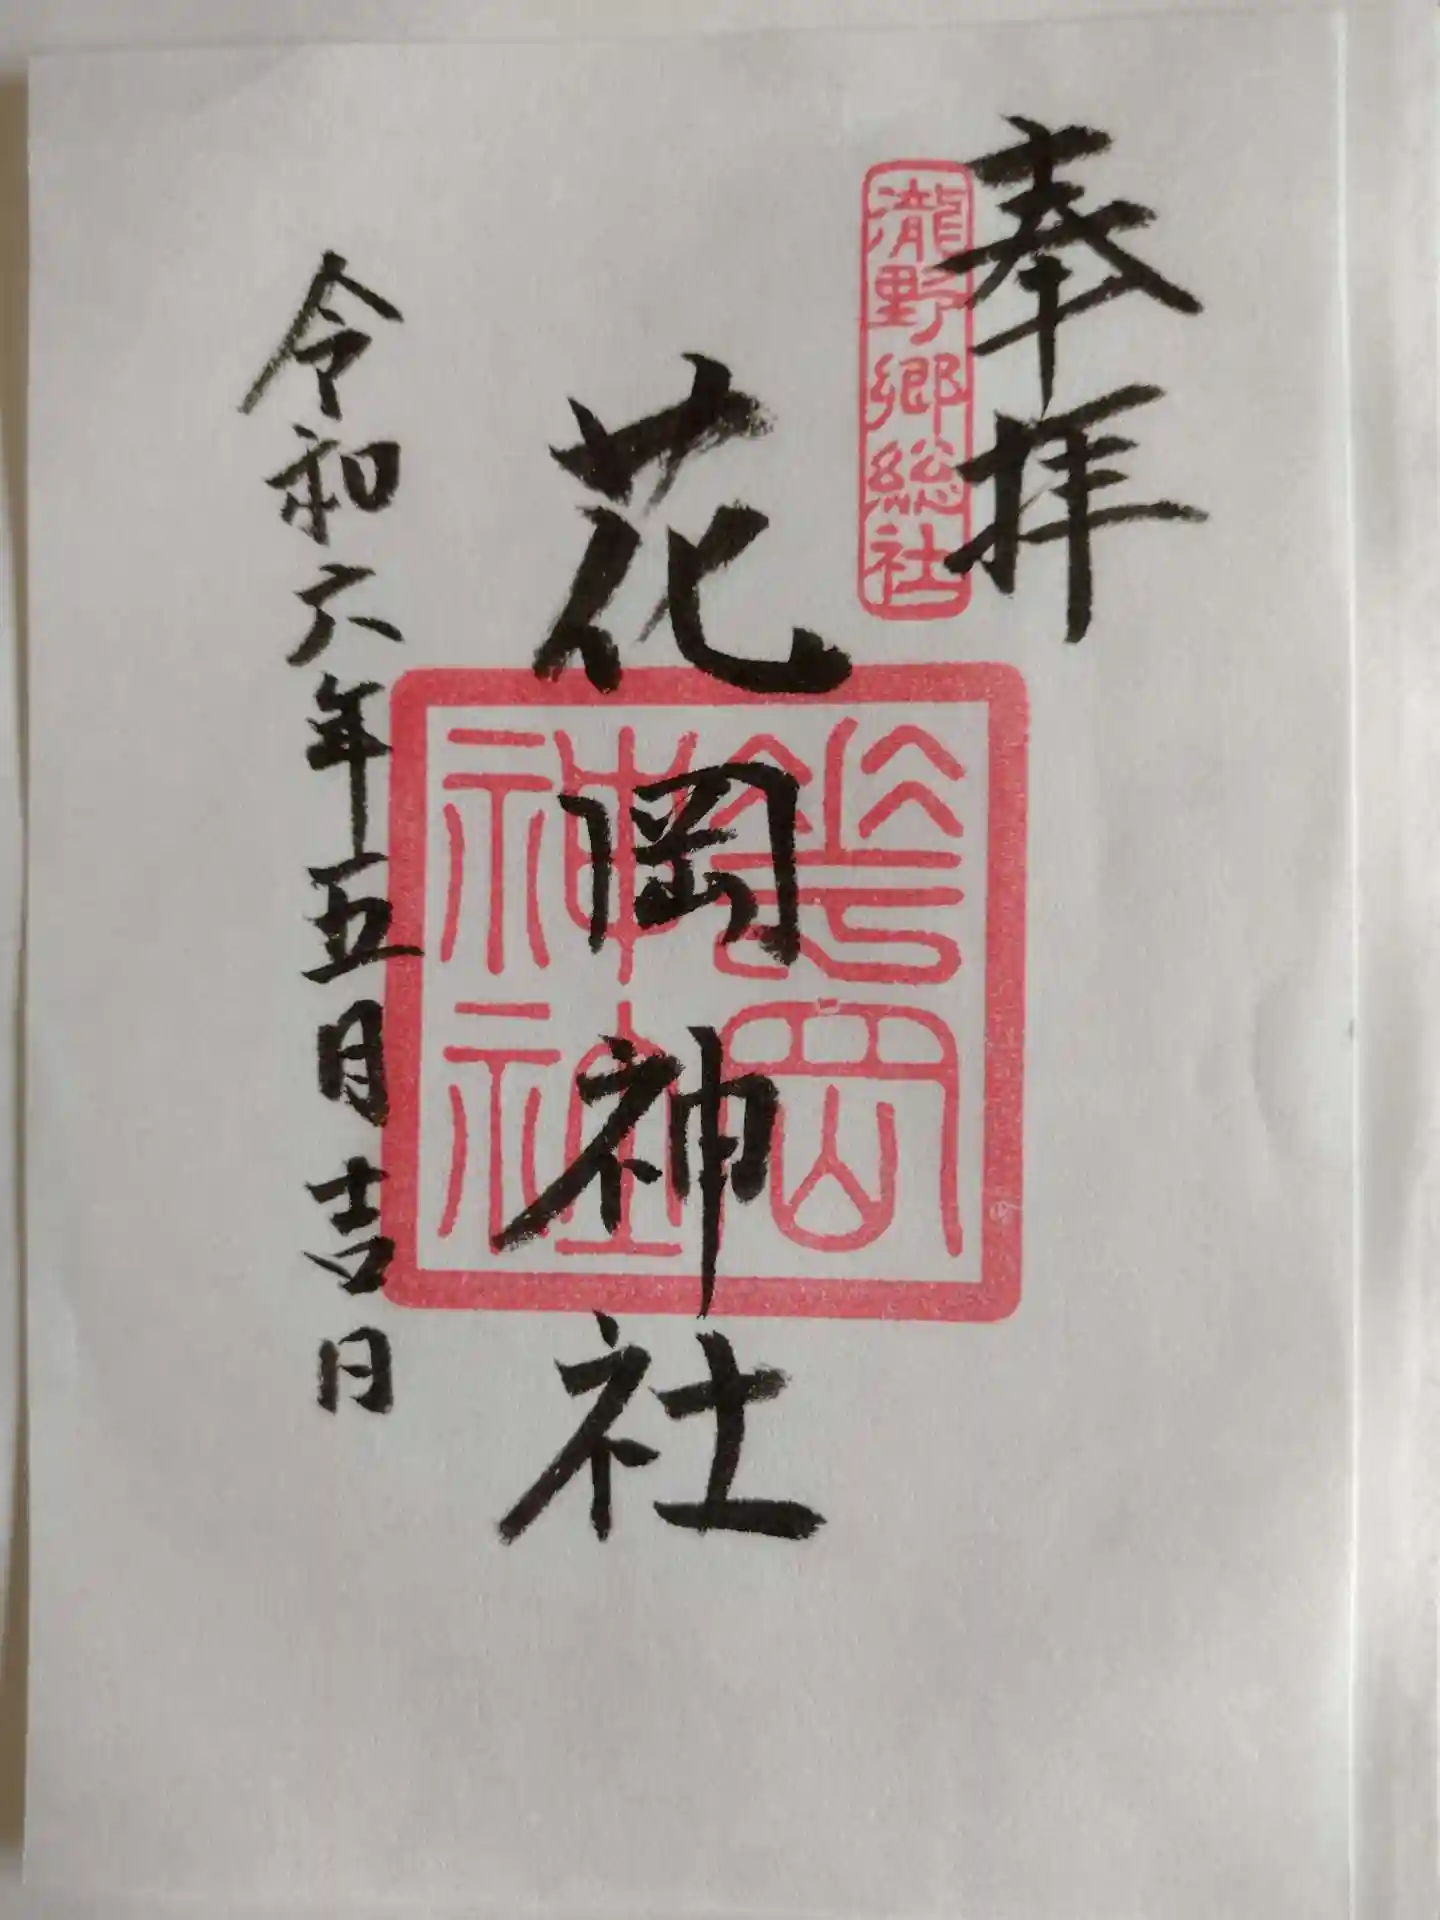 奉拝
瀧野郷総社
花岡神社
華岡
神社
令和六年五月吉日